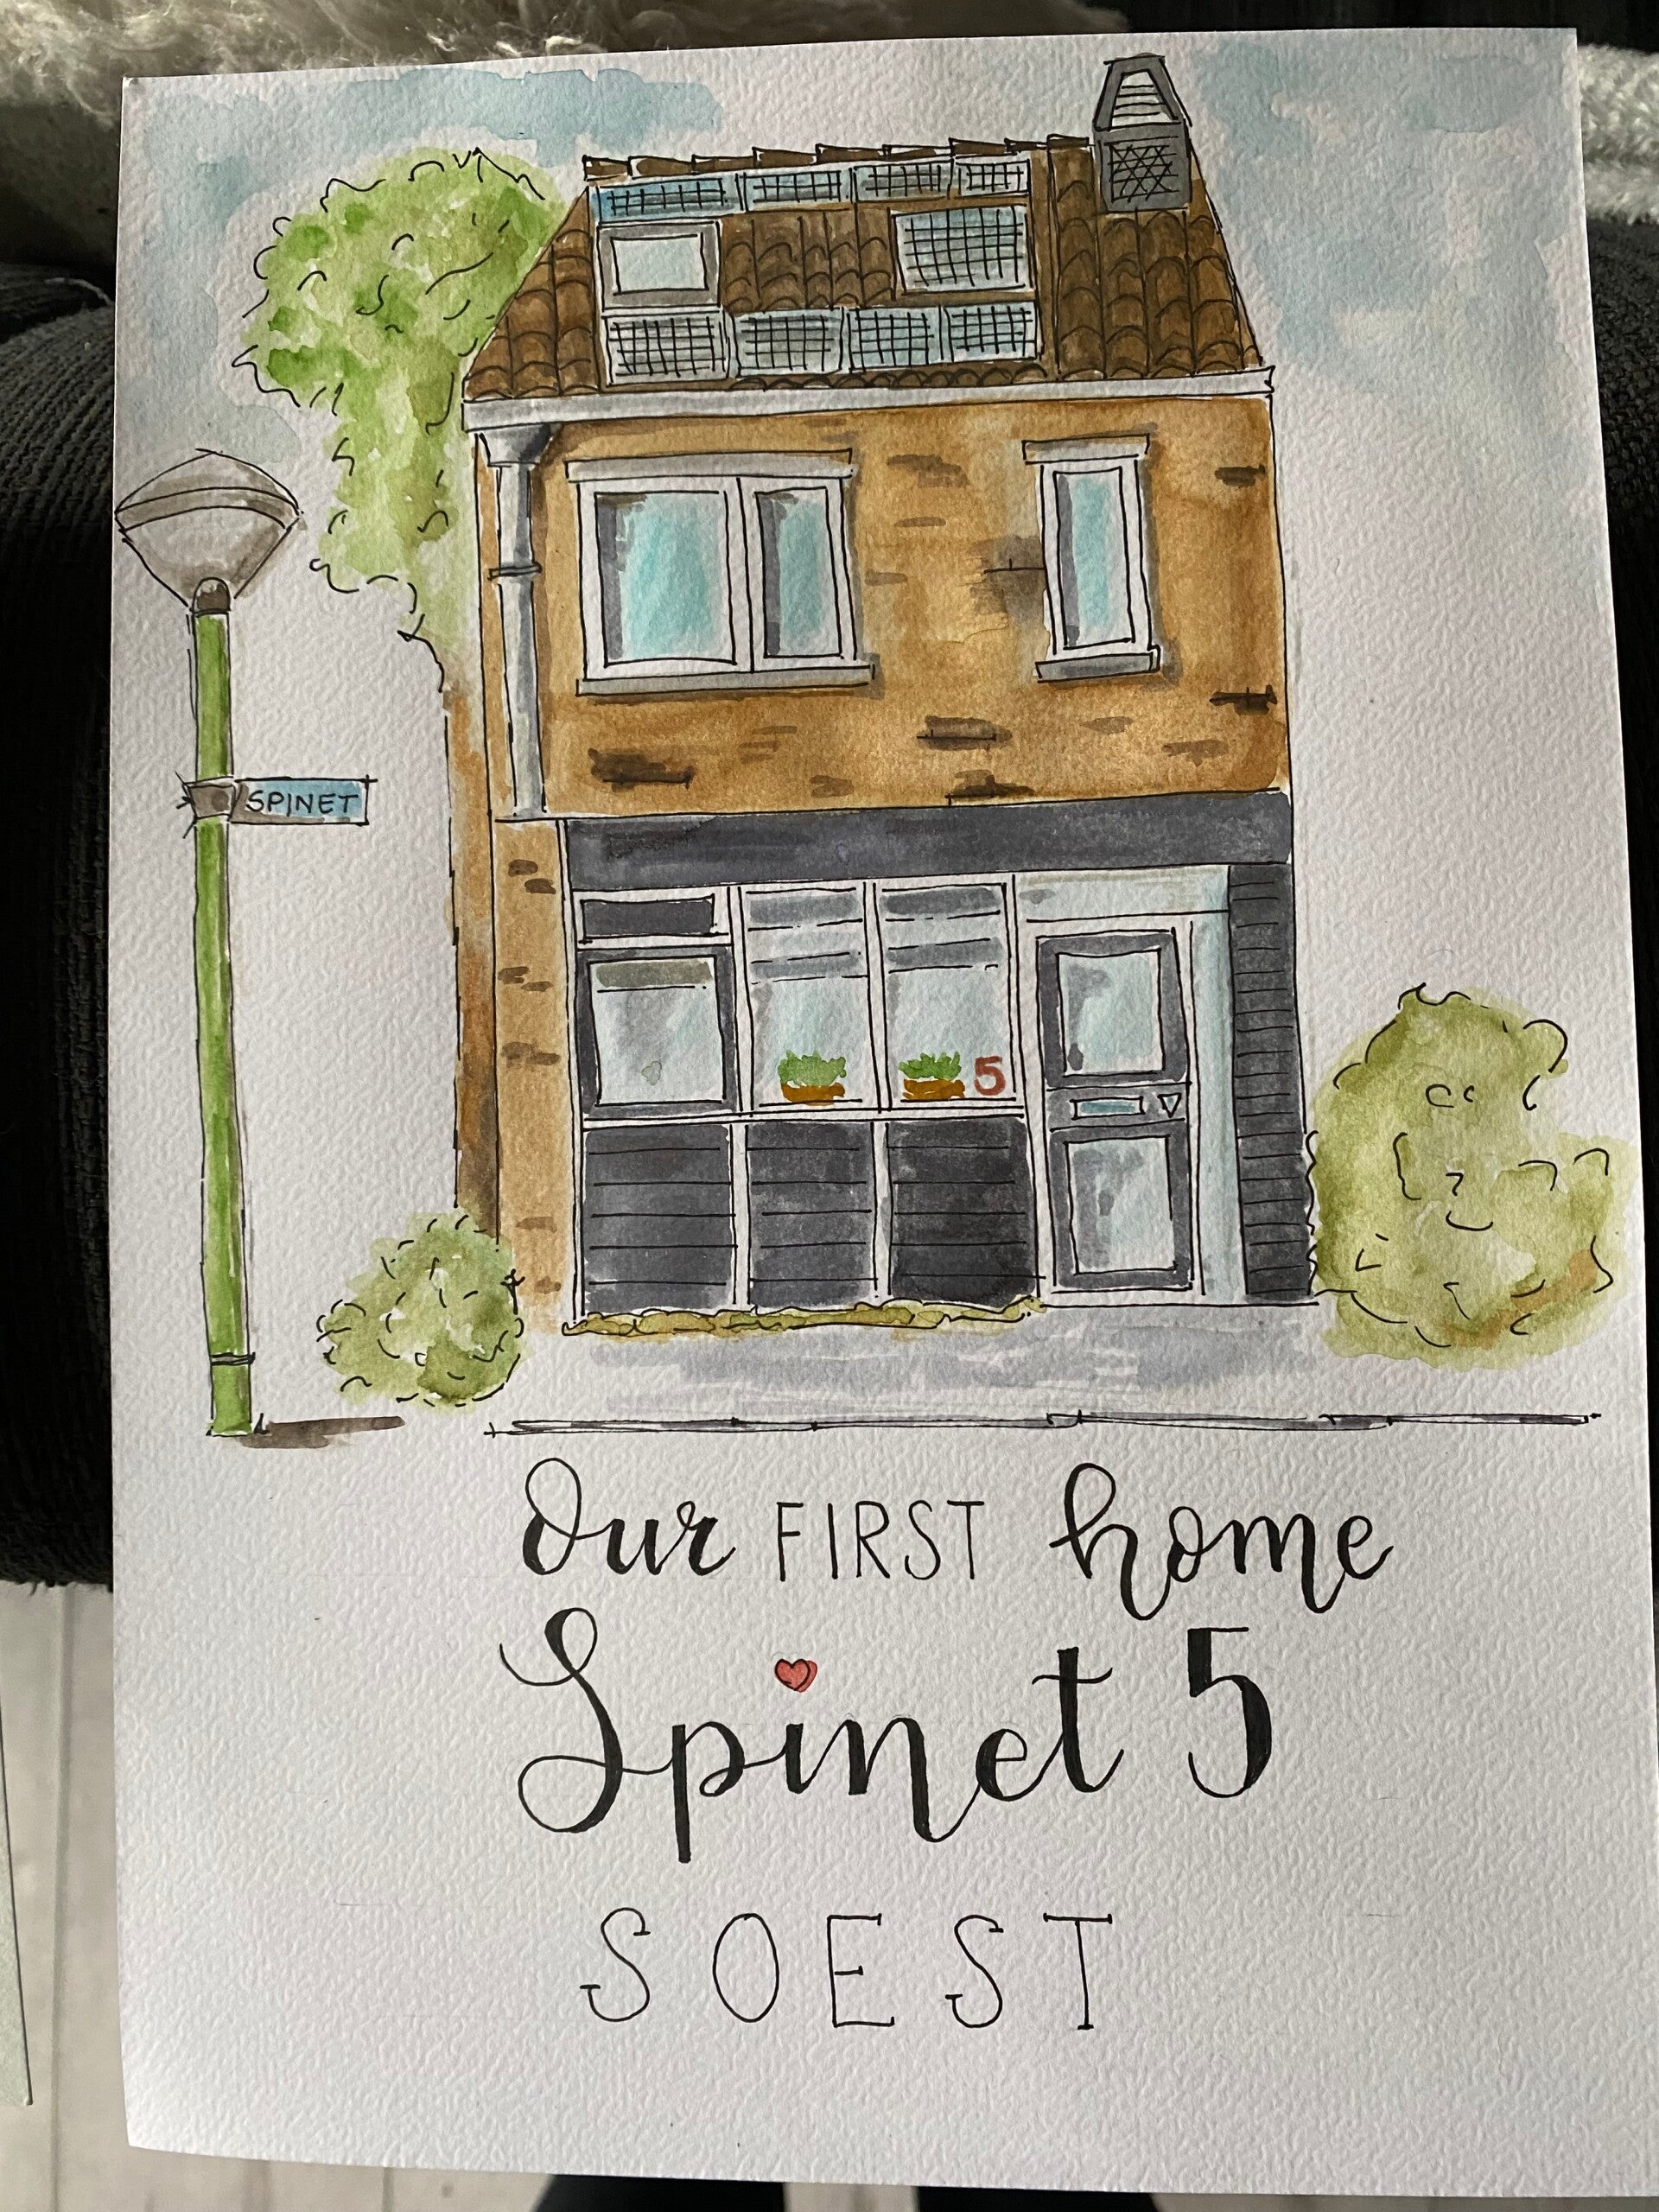 SPINET
5
Our FIRST home
Spinet 5
SOEST